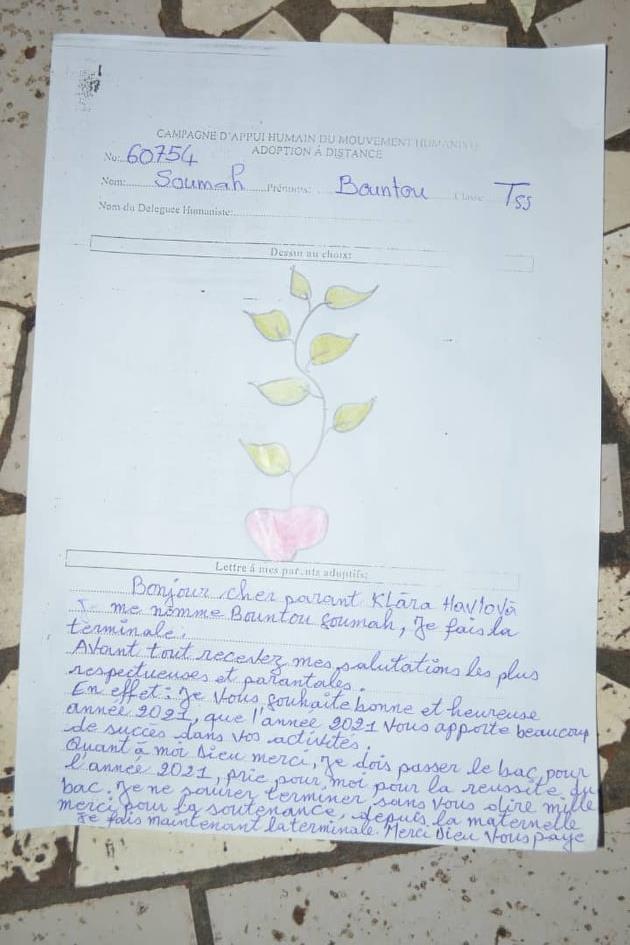 CAMPAGNE D'APPUI HUMAIN DU MOUVEMENT HUMANISTE
ADOPTION Á DISTANCE
No: 60754
Nom: Soumah Prénoms: Bountou Classe: TSS
Nom du Deleguee Humaniste:
Dessin au choix:
Lettre á mes parents adoptifs:
Bonjour cher parant Klára Havlová
Je me nomme Bountou Soumah, Je fais la
terminale.
Avant tout recevez mes salutations les plus
respectueuses et parantales.
En effet: Je Vous souhaite bonne et heureuse
année 2021, que l'année 2021 Vous apporte beaucoup
de succès dans vos activités.
Quant à moi Dieu merci, Je dois passer le bac pour
l'année 2021, prie pour moi pour la reussite du
bac. Je ne saurer terminer sans Vous dire mille
merci pour la soutenance, depuis la maternelle
Je fais maintenant la terminale. Merci Dieu Vous paye